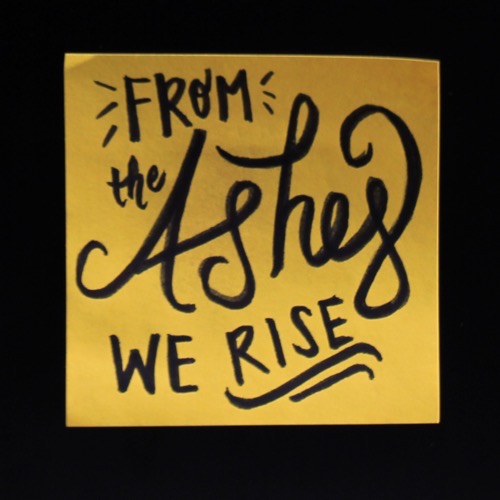 FROM
the Ashes
WE RISE